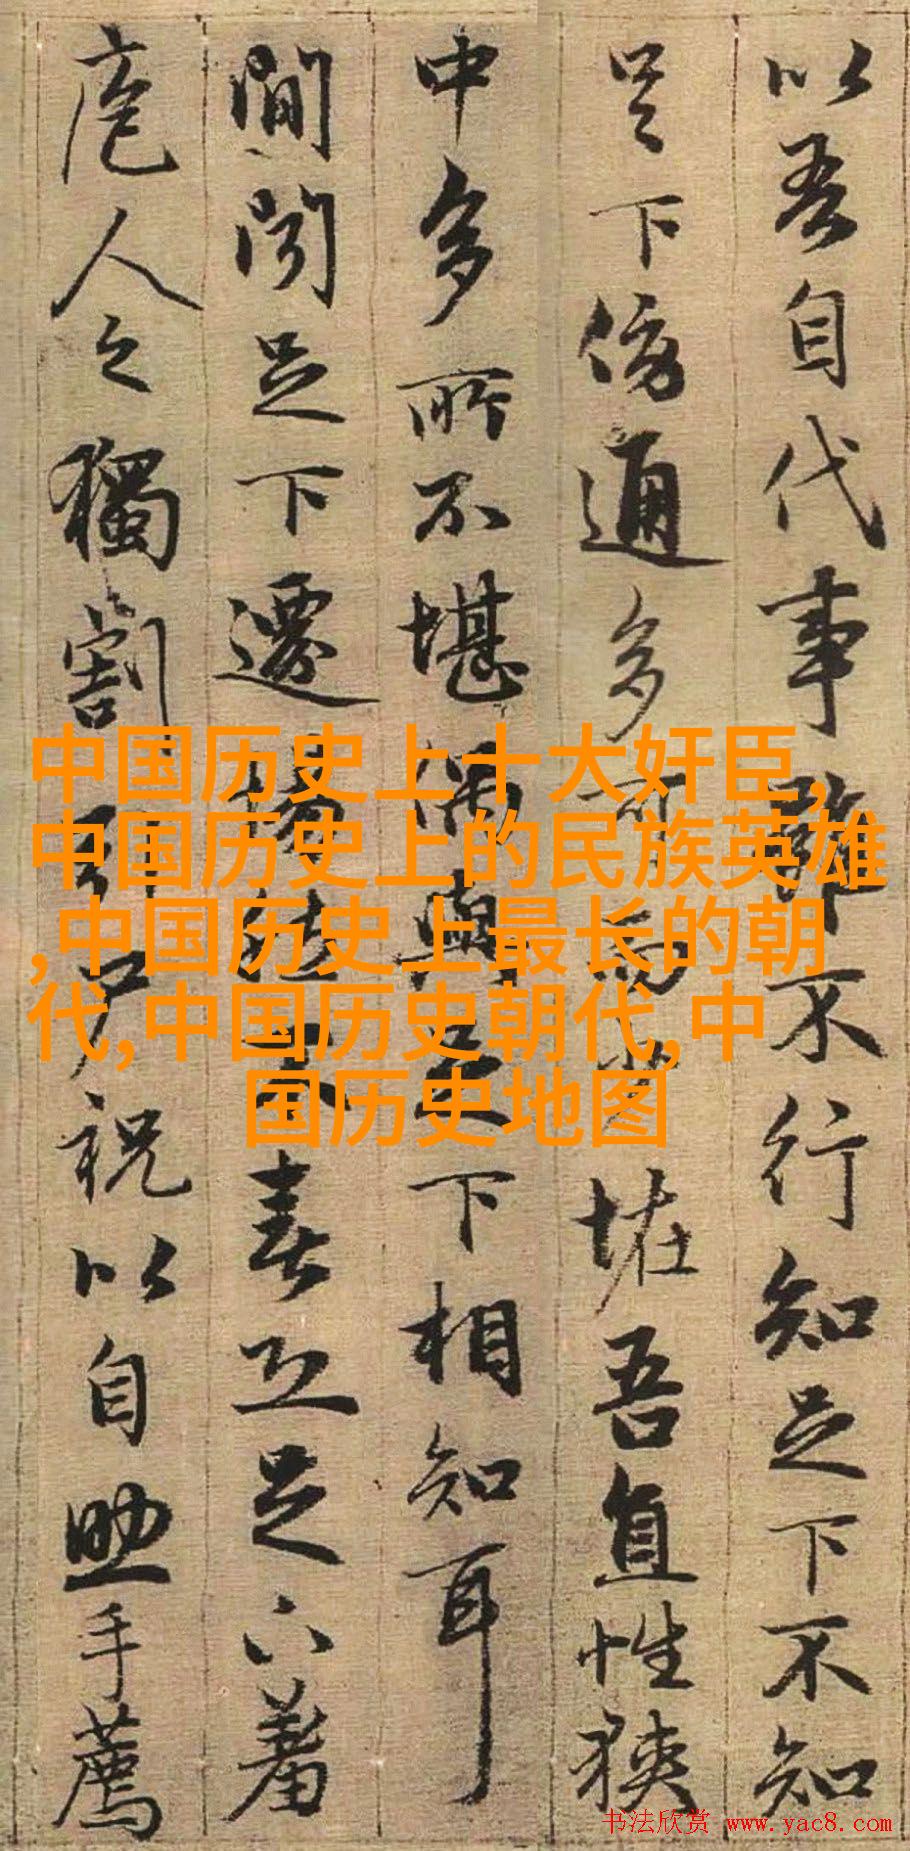 以吾自代事雖不行知足下不知
足下傍通多可而少恠吾直性狹
中多所不堪偶與足下相知耳
間聞足下遷惕然不喜恐足下羞
庖人之獨割引尸祝以自助手薦
中国历史上十大奸臣,
中国历史上的民族英雄
,中国历史上最长的朝
代,中国历史朝代,中
国历史地图
书法欣赏 www.yac8.com